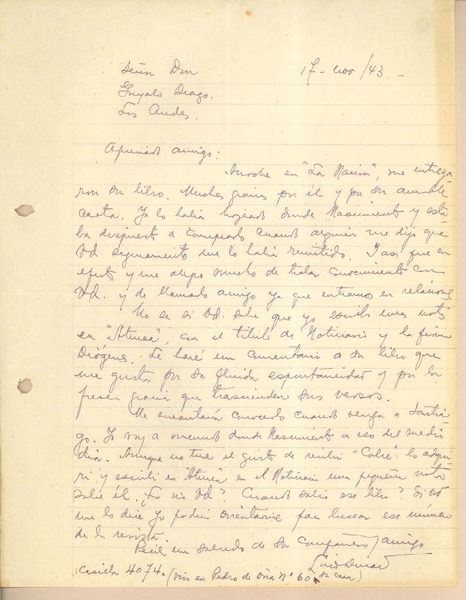 Señor Don
17 - Nov /43.-
Gonzalo Drago.
Los Andes.
Apreciado amigo:
Anoche en "La Nación", me entrega-
ron su libro. Muchas gracias por él y por su amable
carta. Ya lo había hojeado donde Nascimento y esta-
ba dispuesto a comprarlo cuando alguien me dijo que
Ud. seguramente me lo había remitido. Y así fue en
efecto y me alegro mucho de trabar conocimiento con
Ud. y de llamarlo amigo ya que entramos en relaciones
No sé si Ud. sabe que yo escribo unas notas
en "Atenea", con el título de Noticiario y la firma
Diógenes. Le haré un comentario a su libro que
me gusta por su fluida espontaneidad y por la
fresca gracia que trascienden sus versos.
Me encantaría conocerlo cuando venga a Santia-
go. Yo voy a menudo donde Nascimento a eso del medio
día. Aunque no tuve el gusto de recibir "Cobre" lo adqui-
rí y escribí en "Atenea" en el Noticiario una pequeña nota
sobre él. ¿La vio Ud? Cuando salió ese libro? Si Ud
me lo dice yo podría orientarme para buscar ese número
de la revista.
Recib un saludo de su compañero y amigo
Casilla 4074. (Vivo en Pedro de Oña N° 60 de casa)